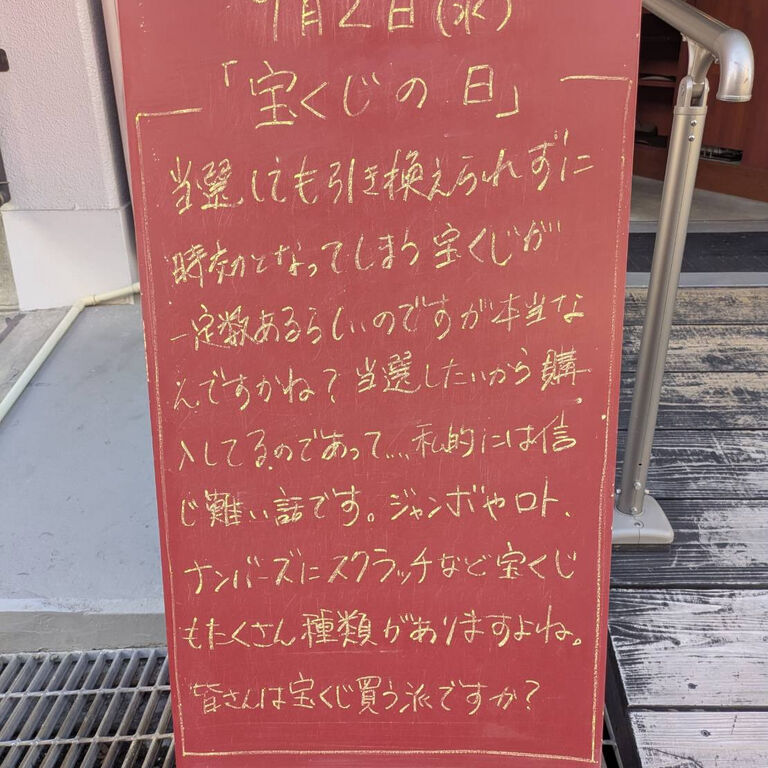 9月2日(水)
「宝くじの日」
当選しても引き換えられずに
時効となってしまう宝くじが
一定数あるらしいのですが本当な
んですかね?当選したいから購
入してるのであって...私的には信
じ難い話です。ジャンボやロト、
ナンバーズにスクラッチなど宝くじ
もたくさん種類がありますよね。
皆さんは宝くじ買う派ですか?